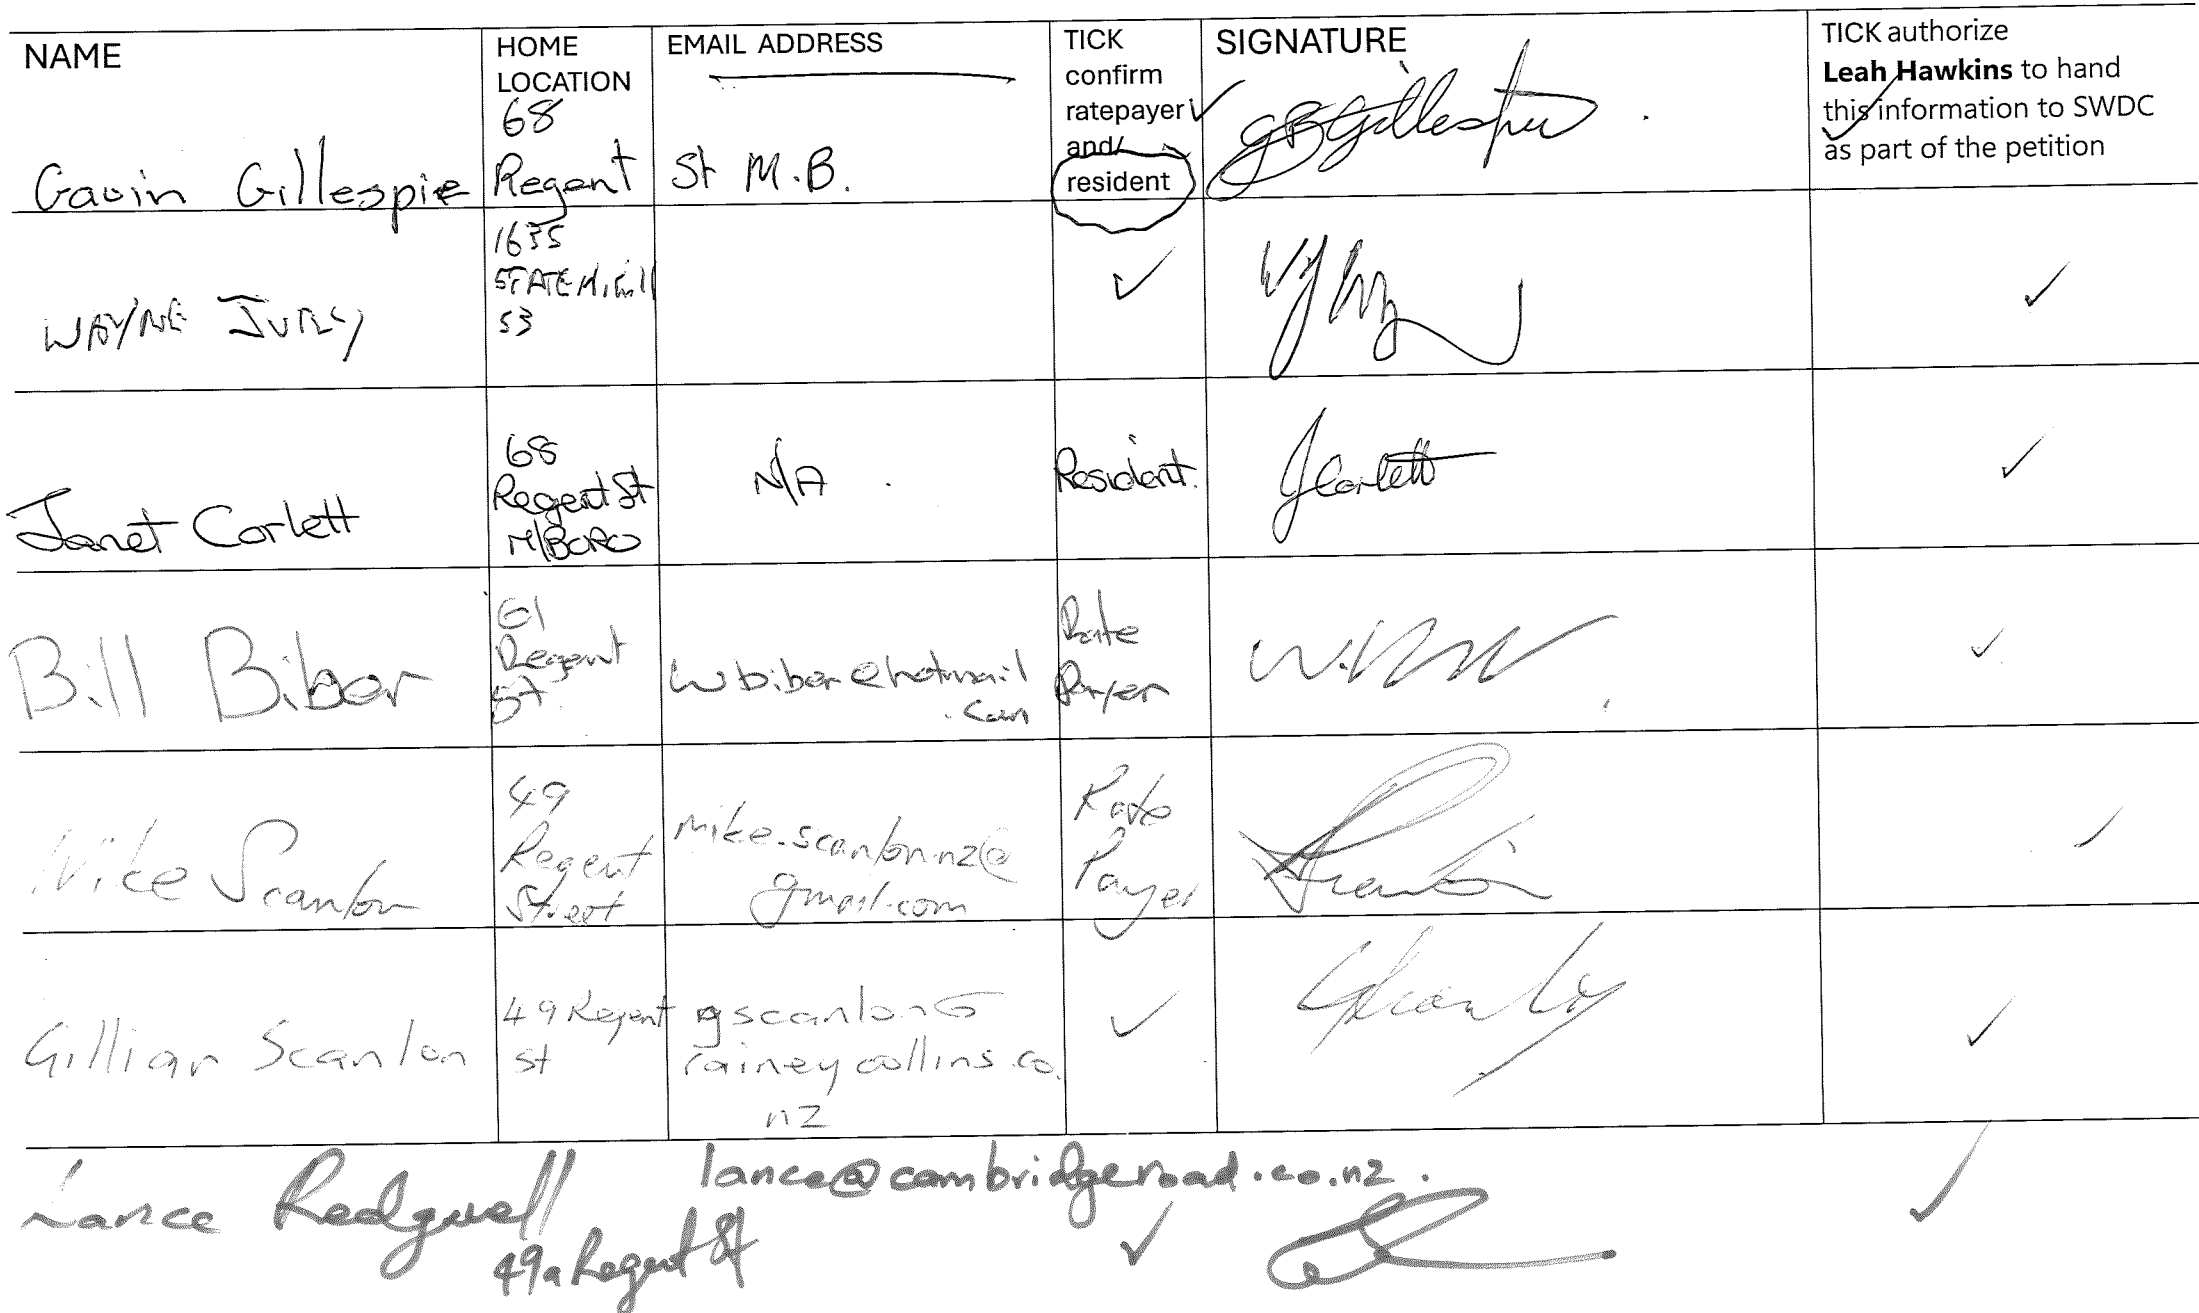 NAME
HOME
LOCATION
EMAIL ADDRESS
TICK
confirm
ratepayer
and/
resident
SIGNATURE
TICK authorize
Leah Hawkins to hand
this information to SWDC
as part of the petition
Gavin Gillespie
68
Regent
St M.B.
GBGillespie
WAYNE JURY
1635
STATE
53
Janet Corlett
68
Regent St
M/BORO
N/A
Resident.
JCorlett
Bill Biber
61
Regent
St
wbiber@hotmail
.com
Rate
Payer
Mike Scanlon
49
Regent
Street
mike.scanlon.nz@
gmail.com
Rate
Payer
Gillian Scanlon
49 Regent
St
gscanlon@
raineycollins.co.
nz
Lance Redgwell
49a Regent St
lance@cambridgeroad.co.nz.